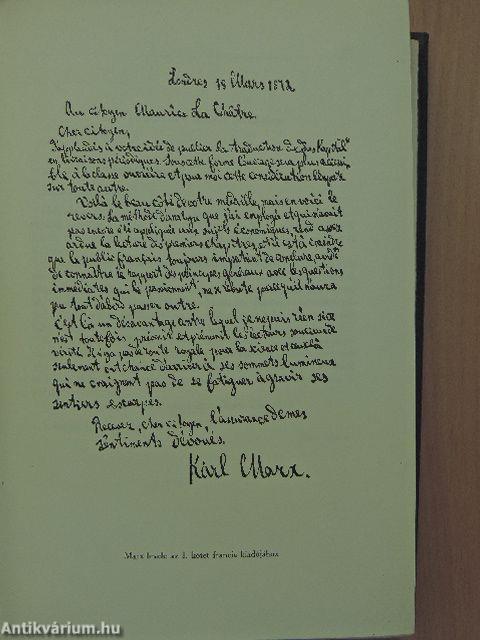 Londres 18 Mars 1872
Au citoyen Maurice La Châtre.
Cher citoyen,
J'applaudis à votre idée de publier la traduction de „Das Kapital“
en livraisons périodiques. Sous cette forme l'ouvrage sera plus accessi-
ble à la classe ouvrière et pour moi cette considération l'emporte
sur toute autre.
Voilà le beau côté de votre médaille, mais en voici le
revers: La méthode d'analyse que j'ai employée et qui n'avait
pas encore été appliquée aux sujets économiques, rend assez
ardue la lecture des premiers chapitres, et il est à craindre
que le public français toujours impatient de conclure, avide
de connaître le rapport des principes généraux avec les questions
immédiates qui le passionnent, ne se rebute parcequ'il n'aura
pu tout d'abord passer outre.
C'est là un désavantage contre lequel je ne puis rien si ce
n'est toutefois prévenir et prémunir les lecteurs soucieux de
vérité. Il n'y a pas de route royale pour la science et ceux-là
seulement ont chance d'arriver à ses sommets lumineux
qui ne craignent pas de se fatiguer à gravir ses
sentiers escarpés.
Recevez, cher citoyen, l'assurance de mes
sentiments dévoués.
Karl Marx.
Marx levele az I. kötet francia kiadójához
Antikvárium.hu